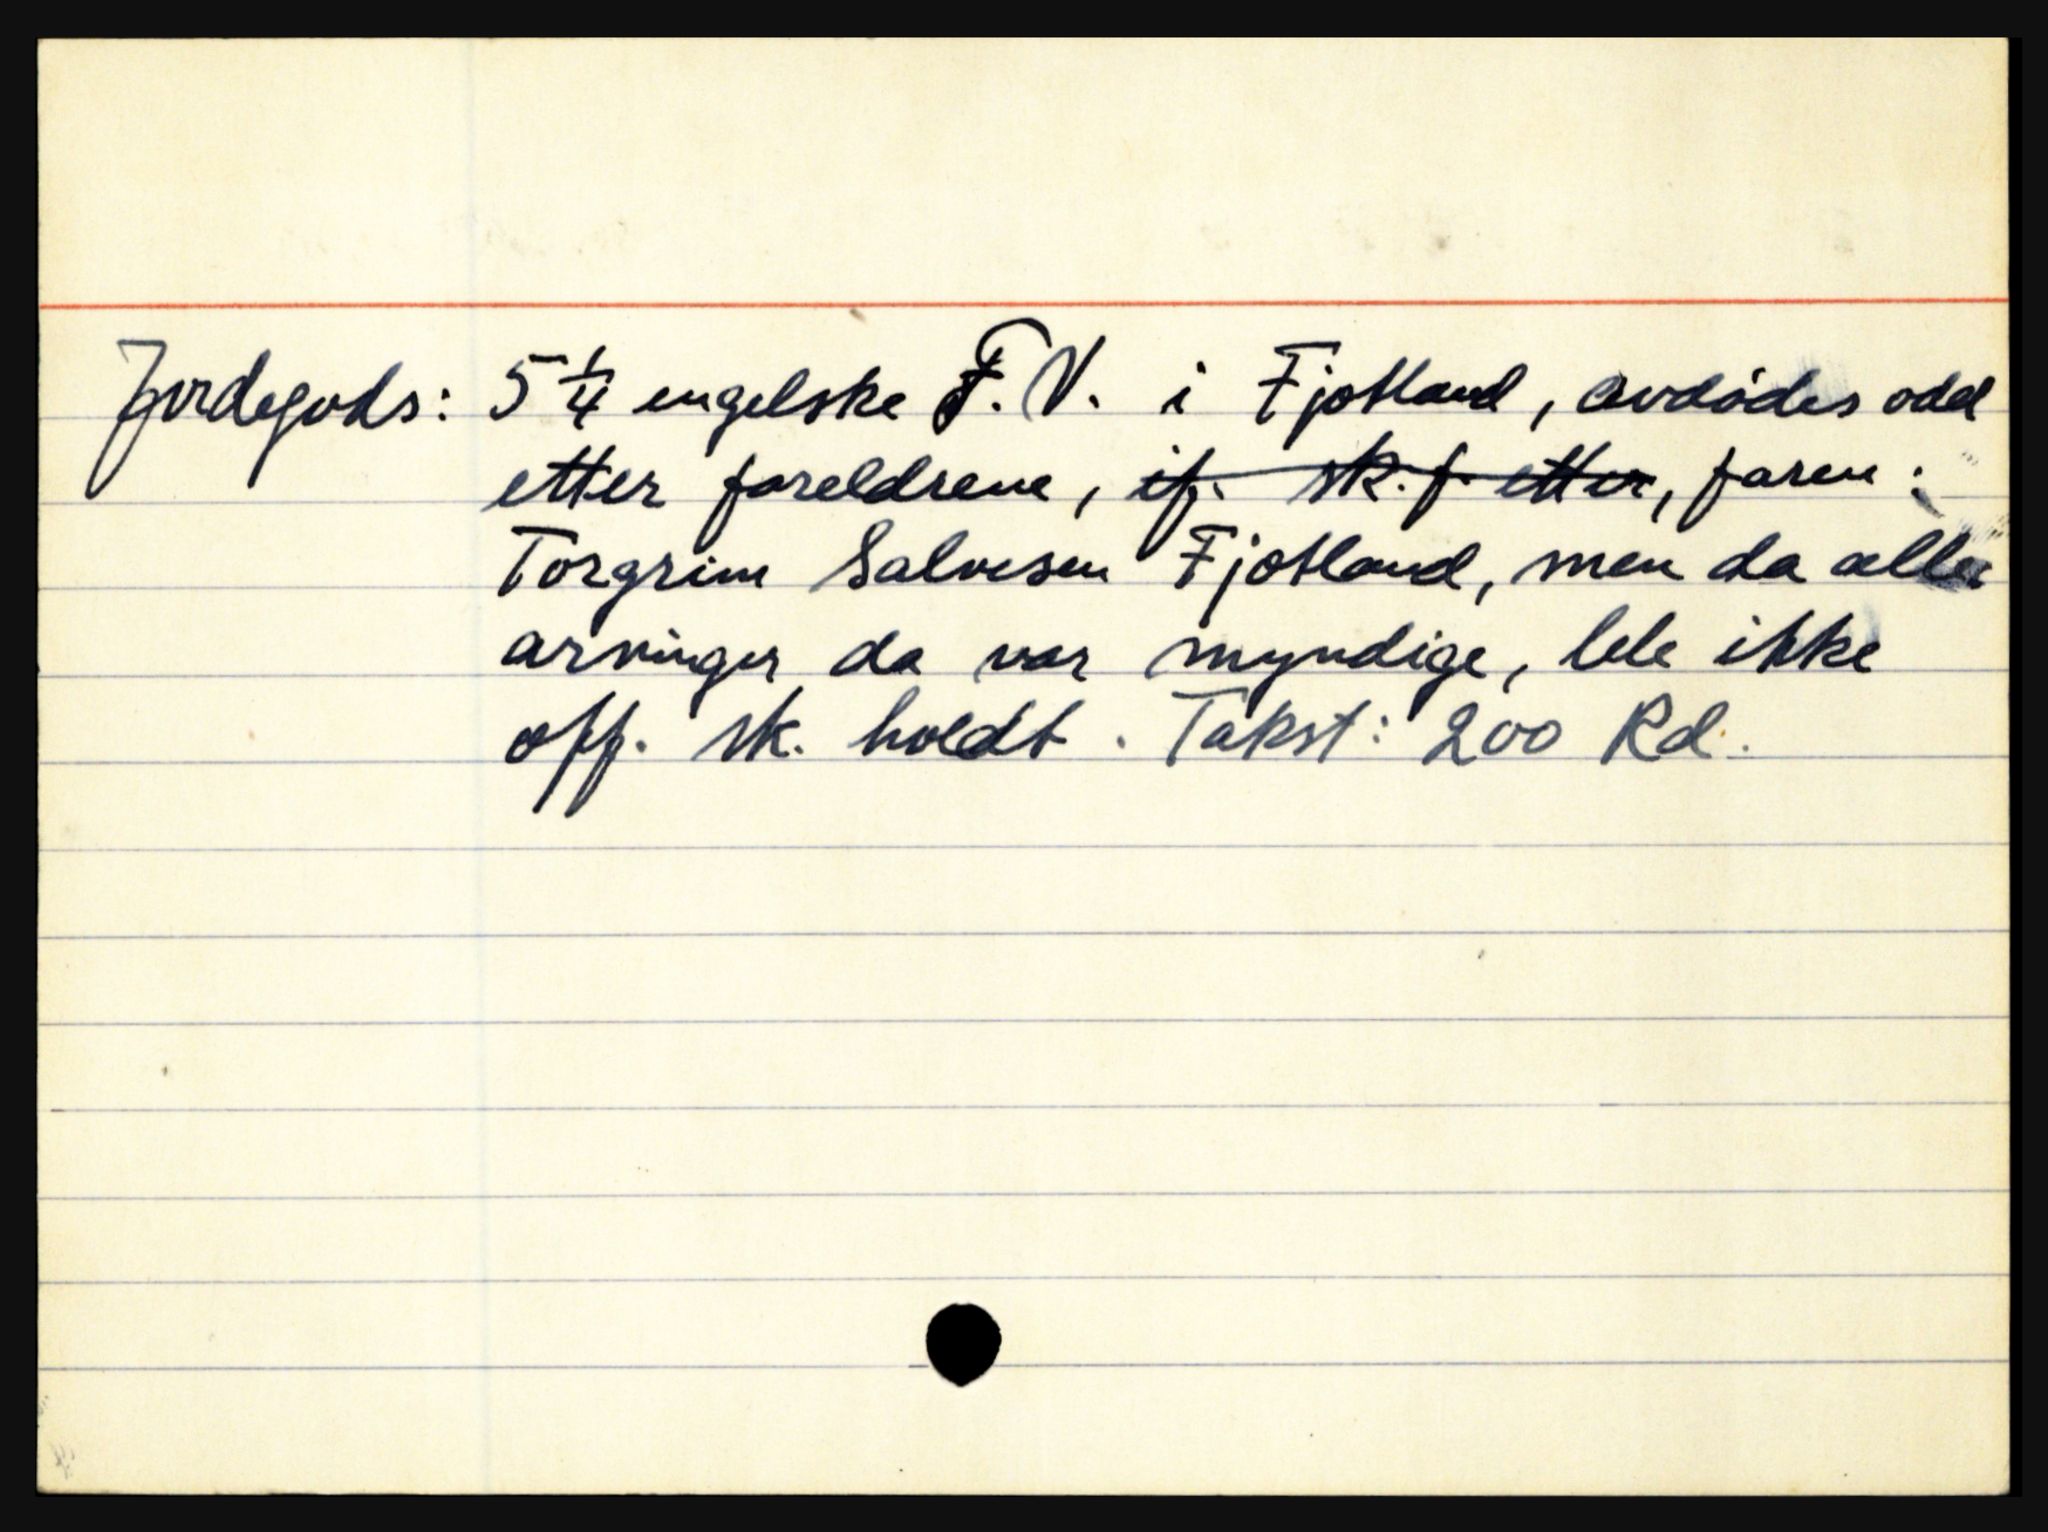 Jordegods: 5 1/4 engelske F.V. i Fjotland, avdødes odel
etter foreldrene, if. sk.f. etter, faren:
Torgrim Salvesen Fjotland, men da alle
arvinger da var myndige, ble ikke
off. sk. holdt. Takst: 200 Rd.